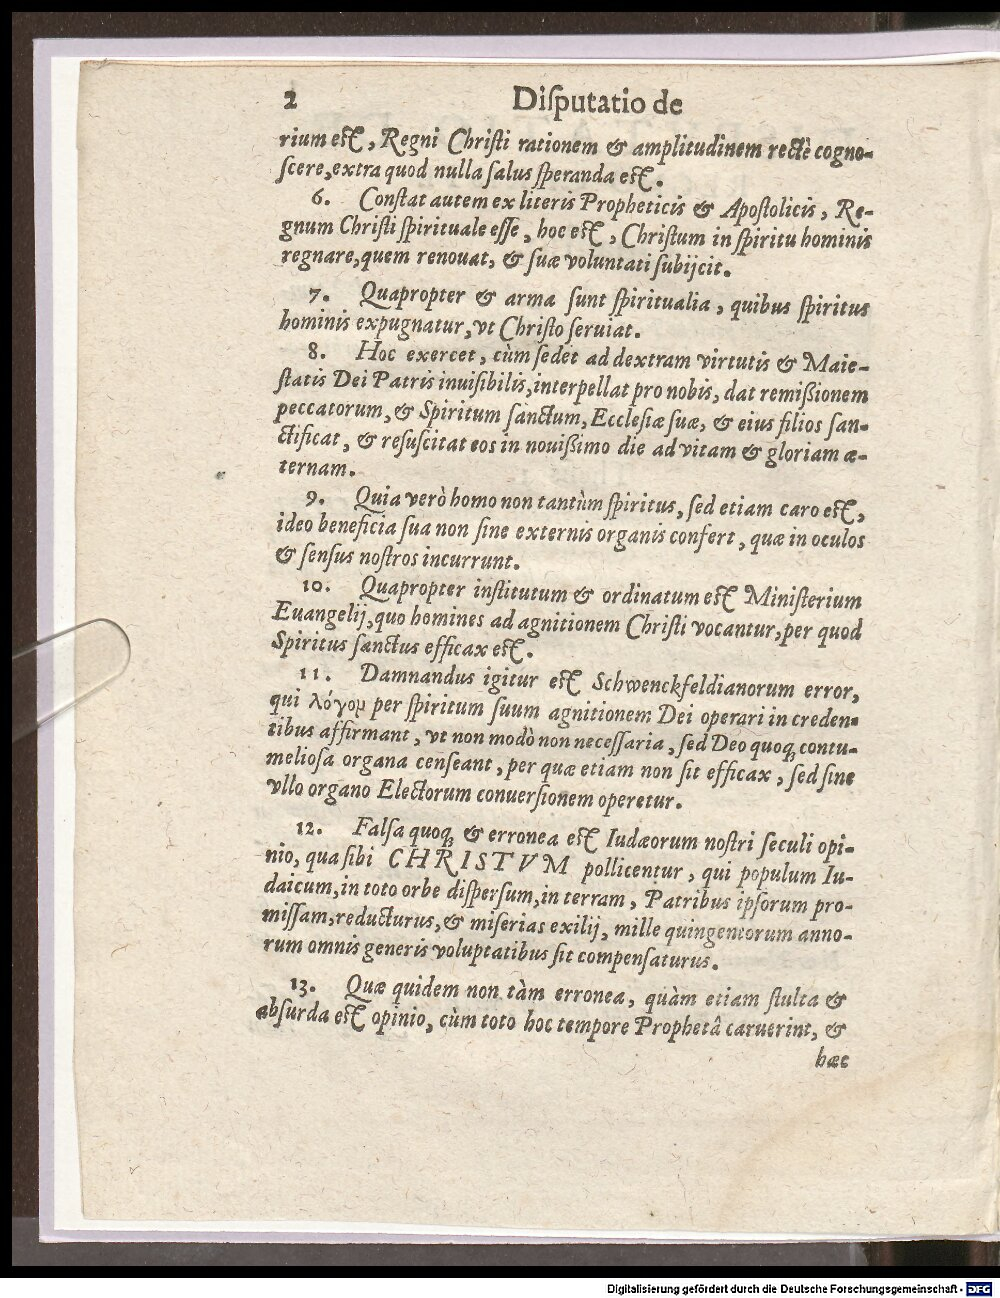 2 Diſputatio de
rium eſt, Regni Chriſti rationem & amplitudinem rectè cogno-
ſcere, extra quod nulla ſalus ſperanda eſt.
6. Conſtat autem ex literis Propheticis & Apoſtolicis, Re-
gnum Chriſti ſpirituale eſſe, hoc eſt, Chriſtum in ſpiritu hominis
regnare, quem renouat, & ſuæ voluntati ſubijcit.
7. Quapropter & arma ſunt ſpiritualia, quibus ſpiritus
hominis expugnatur, vt Chriſto ſeruiat.
8. Hoc exercet, cùm ſedet ad dextram virtutis & Maie-
ſtatis Dei Patris inuiſibilis, interpellat pro nobis, dat remißionem
peccatorum, & Spiritum ſanctum, Eccleſiæ ſuæ, & eius filios ſan-
ctificat, & reſuſcitat eos in nouißimo die ad vitam & gloriam æ-
ternam.
9. Quia verò homo non tantùm ſpiritus, ſed etiam caro eſt,
ideo beneficia ſua non ſine externis organis confert, quæ in oculos
& ſenſus noſtros incurrunt.
10. Quapropter inſtitutum & ordinatum eſt Miniſterium
Euangelij, quo homines ad agnitionem Chriſti vocantur, per quod
Spiritus ſanctus efficax eſt.
11. Damnandus igitur eſt Schwenckfeldianorum error,
qui λόγομ per ſpiritum ſuum agnitionem Dei operari in creden-
tibus affirmant, vt non modò non neceſſaria, ſed Deo quoq́; contu-
melioſa organa cenſeant, per quæ etiam non ſit efficax, ſed ſine
vllo organo Electorum conuerſionem operetur.
12. Falſa quoq́; & erronea eſt Iudæorum noſtri ſeculi opi-
nio, qua ſibi CHRISTVM pollicentur, qui populum Iu-
daicum, in toto orbe diſperſum, in terram, Patribus ipſorum pro-
miſſam, reducturus, & miſerias exilij, mille quingentorum anno-
rum omnis generis voluptatibus ſit compenſaturus.
13. Quæ quidem non tàm erronea, quàm etiam ſtulta &
abſurda eſt opinio, cùm toto hoc tempore Prophetâ caruerint, &
hæc
Digitalisierung gefördert durch die Deutsche Forschungsgemeinschaft - DFG